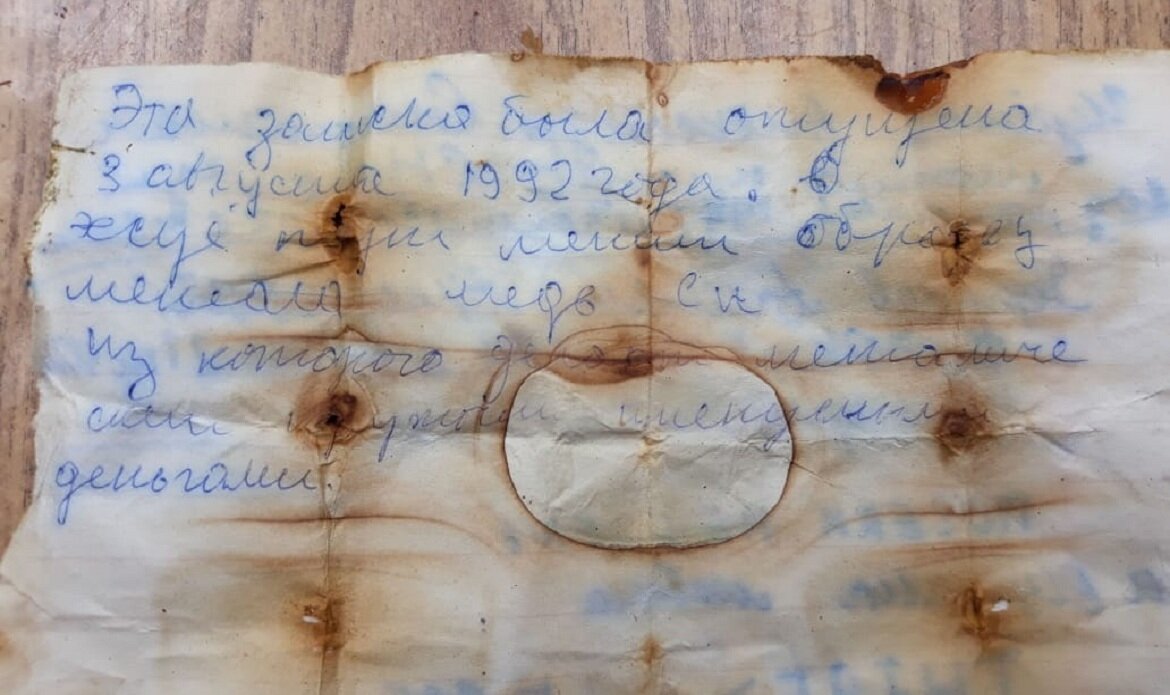 Эта записка была опущена
3 августа 1992 года. в
образец
метала медь Cu
Из которого делают металиче
ские кружки именуемыми
деньгами.